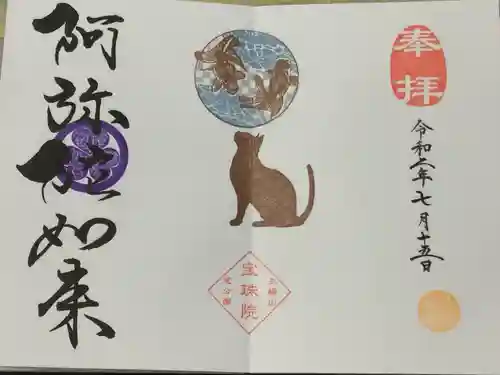 奉拝
令和二年七月十五日
宝珠院
阿弥陀如来